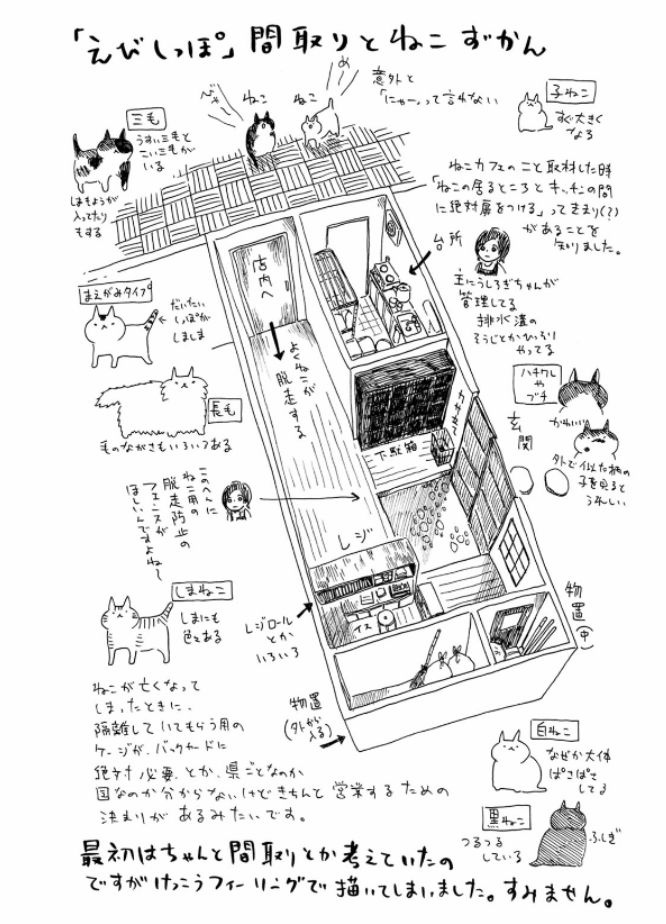 「えびしっぽ」間取りとねこずかん
ぎゃ
ねこ
ねこ
め
意外と
「にゃー」って言わない
子ねこ
すぐ大きく
なる
三毛
うすい三毛と
こい三毛が
いる
しまもようが
入ってたり
もする
ねこカフェのこと取材した時
「ねこの居るところとキッチンの間
に絶対扉をつける」ってきまり(?)
があることを
知りました。
台所
主にうしろぎちゃんが
管理してる
排水溝の
そうじとかひっそり
やってる
店内へ
よくねこが
脱走する
まえがみタイプ
だいたい
しっぽが
しましま
長毛
毛のながさもいろいろある
ハチワレ
や
ブチ
かわいい
外で似た柄の
子を見ると
うれしい
玄関
カサ立て
下駄箱
このへんに
ねこ用の
脱走防止の
フェンスが
ほしいんですよね〜
レジ
イス
レジロール
とか
いろいろ
しまねこ
しまにも
色々ある
物置
(中)
物置
(外から
入る)
ねこが亡くなって
しまったときに、
隔離していてもらう用の
ケージが、バックヤードに
絶対必要、とか、県ごとなのか
国なのか分からないけどきちんと営業するための
決まりがあるみたいです。
白ねこ
なぜか大体
ぱさぱさ
してる
黒ねこ
つるつる
している
ふしぎ
最初はちゃんと間取りとか考えていたの
ですがけっこうフィーリングで描いてしまいました。すみません。